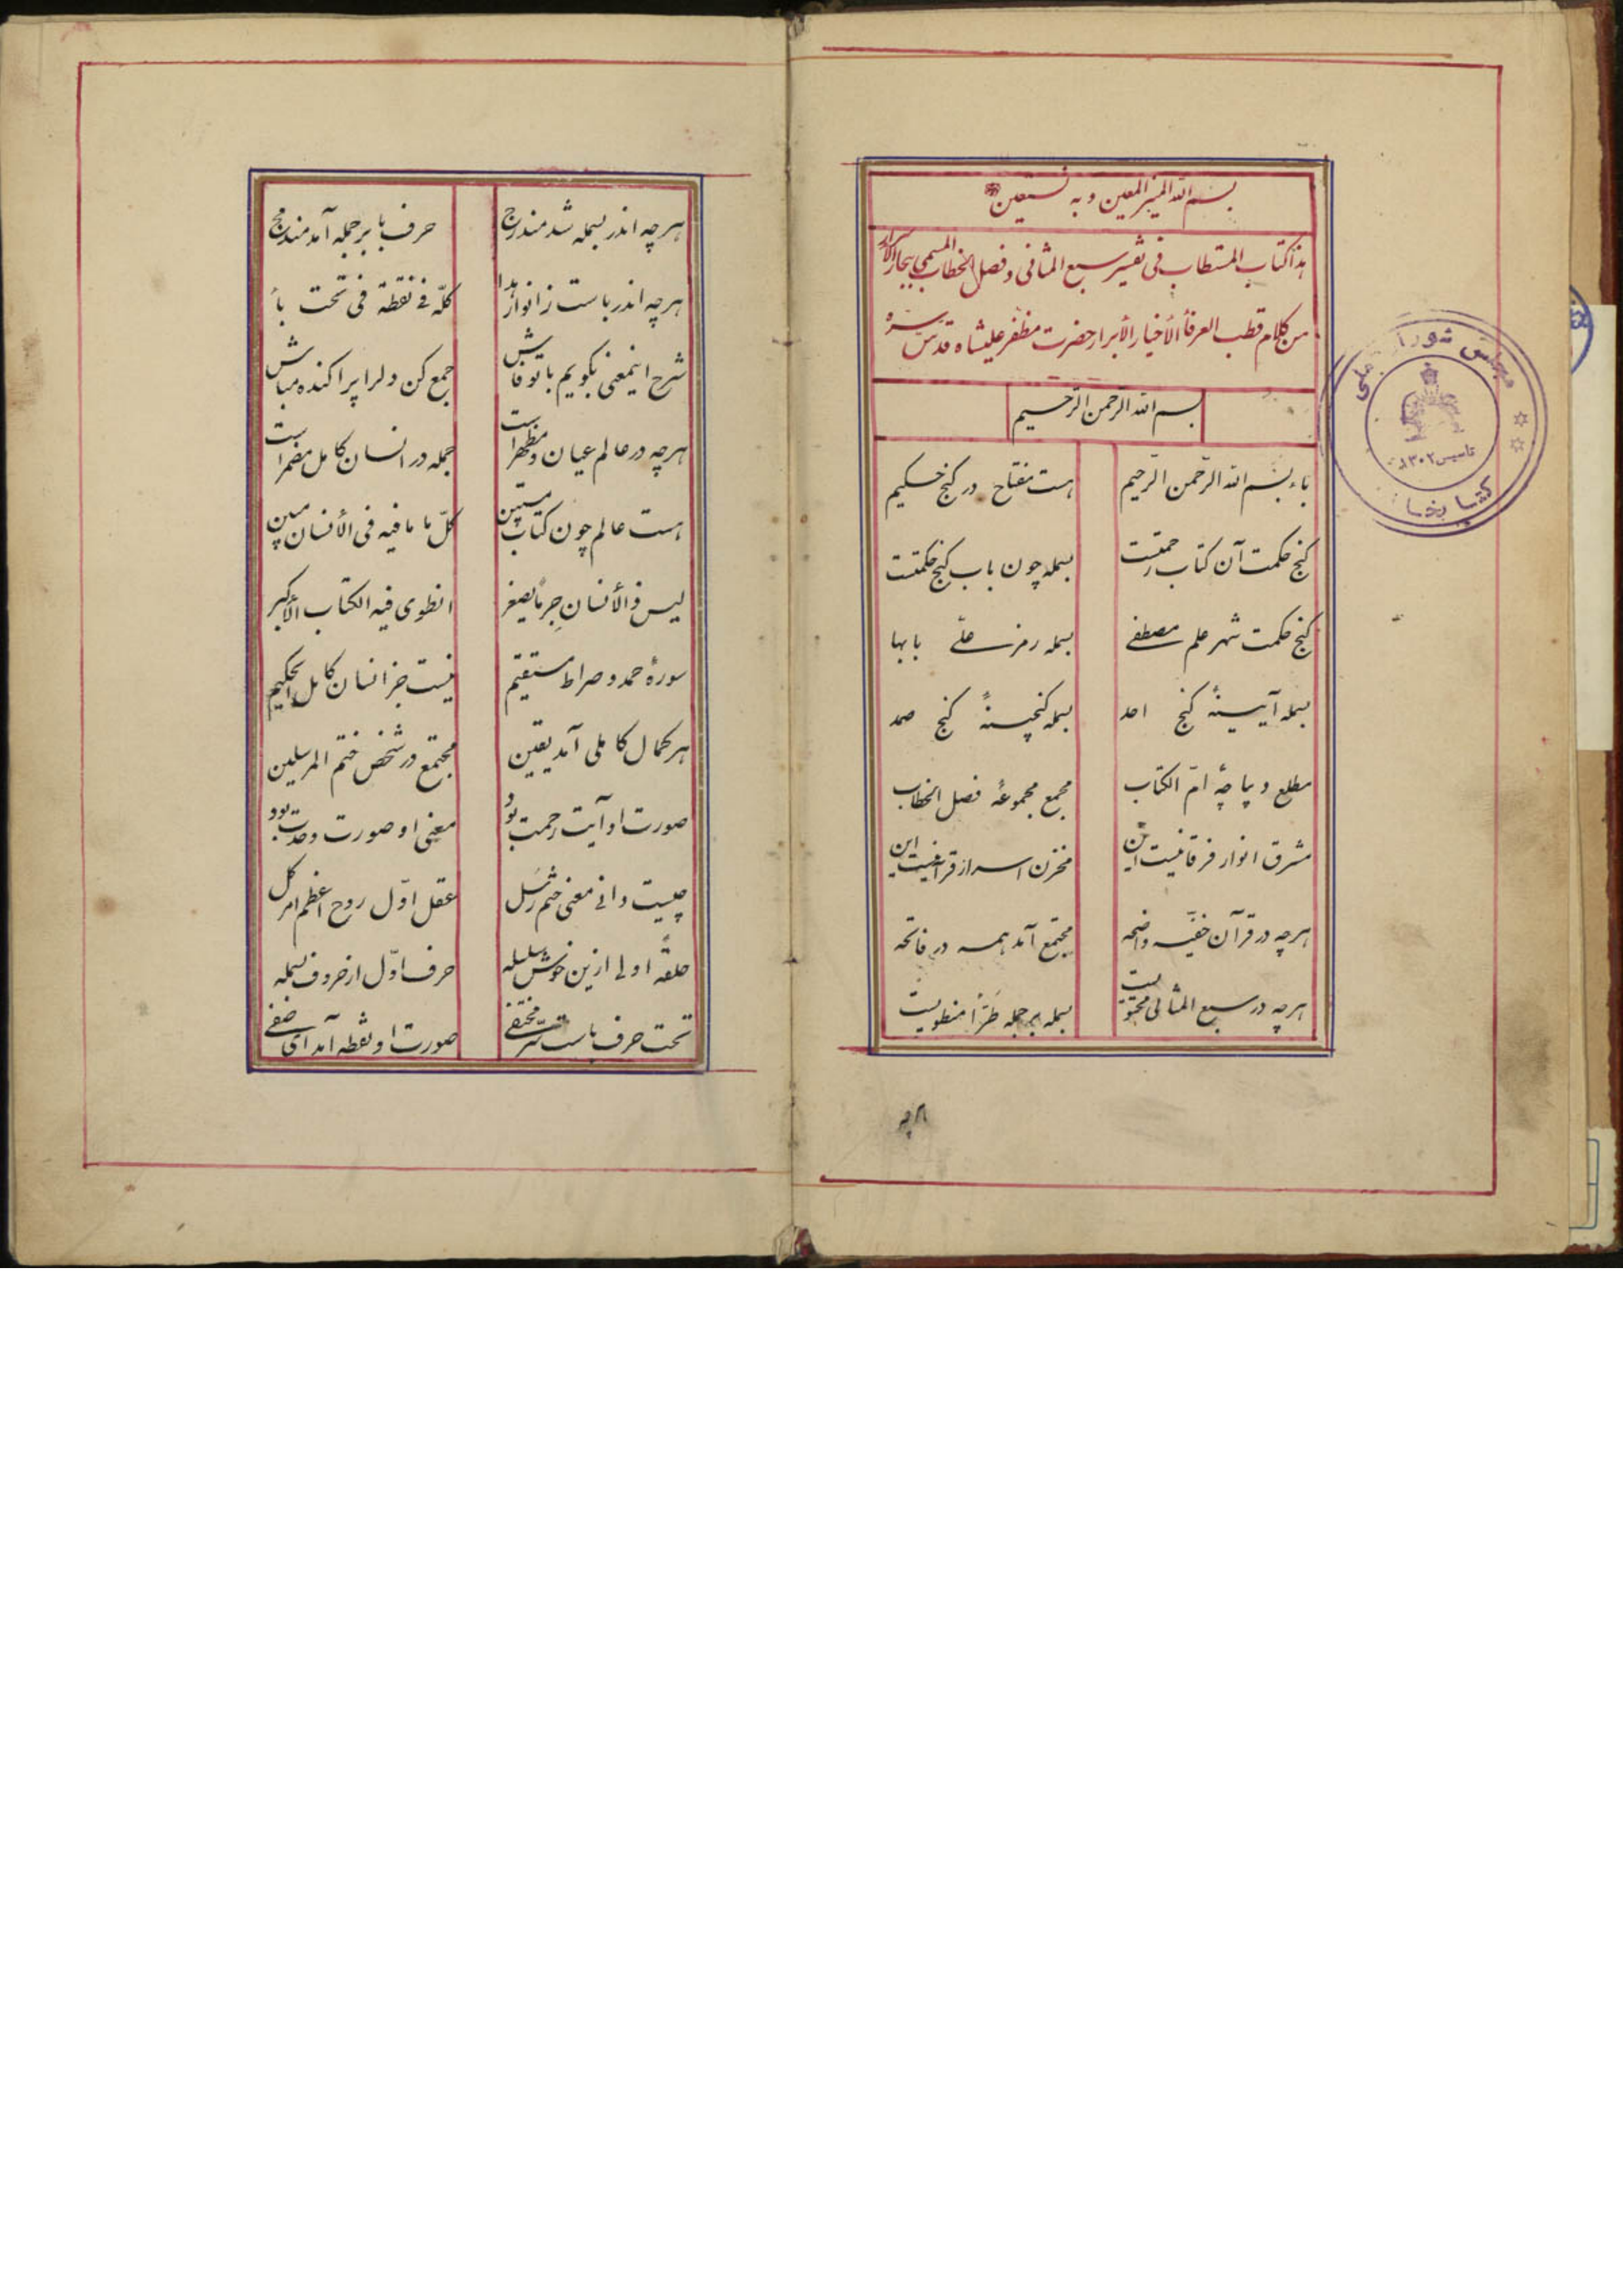 بسم الله المیسر المعین و به نستعین
هذا کتاب المستطاب فی تفسیر سبع المثانی و فصل الخطاب المسمی ببحار الاسرار
من کلام قطب العرفأ الأخیار الأبرار حضرت مظفر علیشاه قدس سره
بسم الله الرحمن الرحیم
باء بسم الله الرّحمن الرّحیم هست مفتاح در گنج حکیم
گنج حکمت آن کتاب رحمتست بسمله چون باب گنج حکمتست
گنج حکمت شهر علم مصطفی بسمله رمز علیّ بابها
بسمله آیینهٔ گنج احد بسمله گنجینهٔ گنج صمد
مطلع دیباچهٔ امّ الکتاب مجمع مجموعهٔ فصل الخطاب
مشرق انوار فرقانیست این مخزن اسرار قرآنیست این
هرچه در قرآن خفیّه واضحه مجتمع آمد همه در فاتحه
هرچه در سبع المثانی محتویست بسمله بر جمله طرّاً منطویست
هرچه
هرچه اندر بسمله شد مندرج حرف با بر جمله آمد مندمج
هرچه اندر باست ز انوار هدا کلّه فی نقطة فی تحت بأ
شرح اینمعنی بگویم با تو فاش جمع کن دلرا پراکنده مباش
هرچه در عالم عیان و مظهراست جمله در انسان کامل مضمراست
هست عالم چون کتاب مستبین کلّ ما فیه فی الأنسان مبین
لیس فی الأنسان جرماً یصغر انطوی فیه الکتاب الأکبر
سورهٔ حمد و صراط مستقیم نیست جز انسان کامل ای حکیم
هر کمال کاملی آمد یقین مجتمع در شخص ختم المرسلین
صورت او آیت رحمت بود معنی او صورت وحدت بود
چیست دانی معنی ختم رسل عقل اوّل روح اعظم امر کل
حلقهٔ اولی ازین خوش سلسله حرف اوّل از حروف بسمله
تحت حرف باست سرّ مختفی صورت او نقطه آمد ای صفی
مجلس شورای ملی
تاسیس ۱۳۰۲
کتابخانه